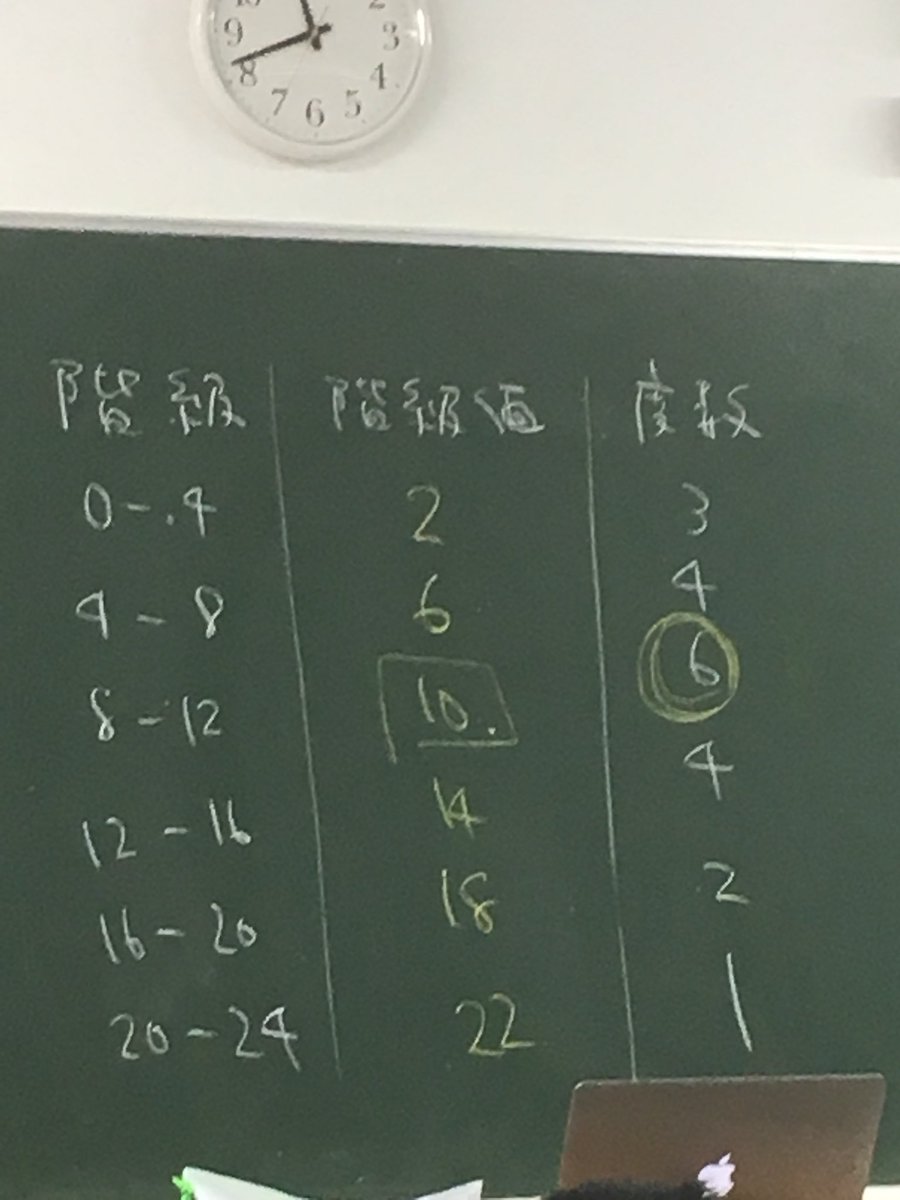 10 2
9 3
8 4
7 6 5
階級 階級値 度数
0-4 2 3
4-8 6 4
8-12 10. 6
12-16 14 4
16-20 18 2
20-24 22 1